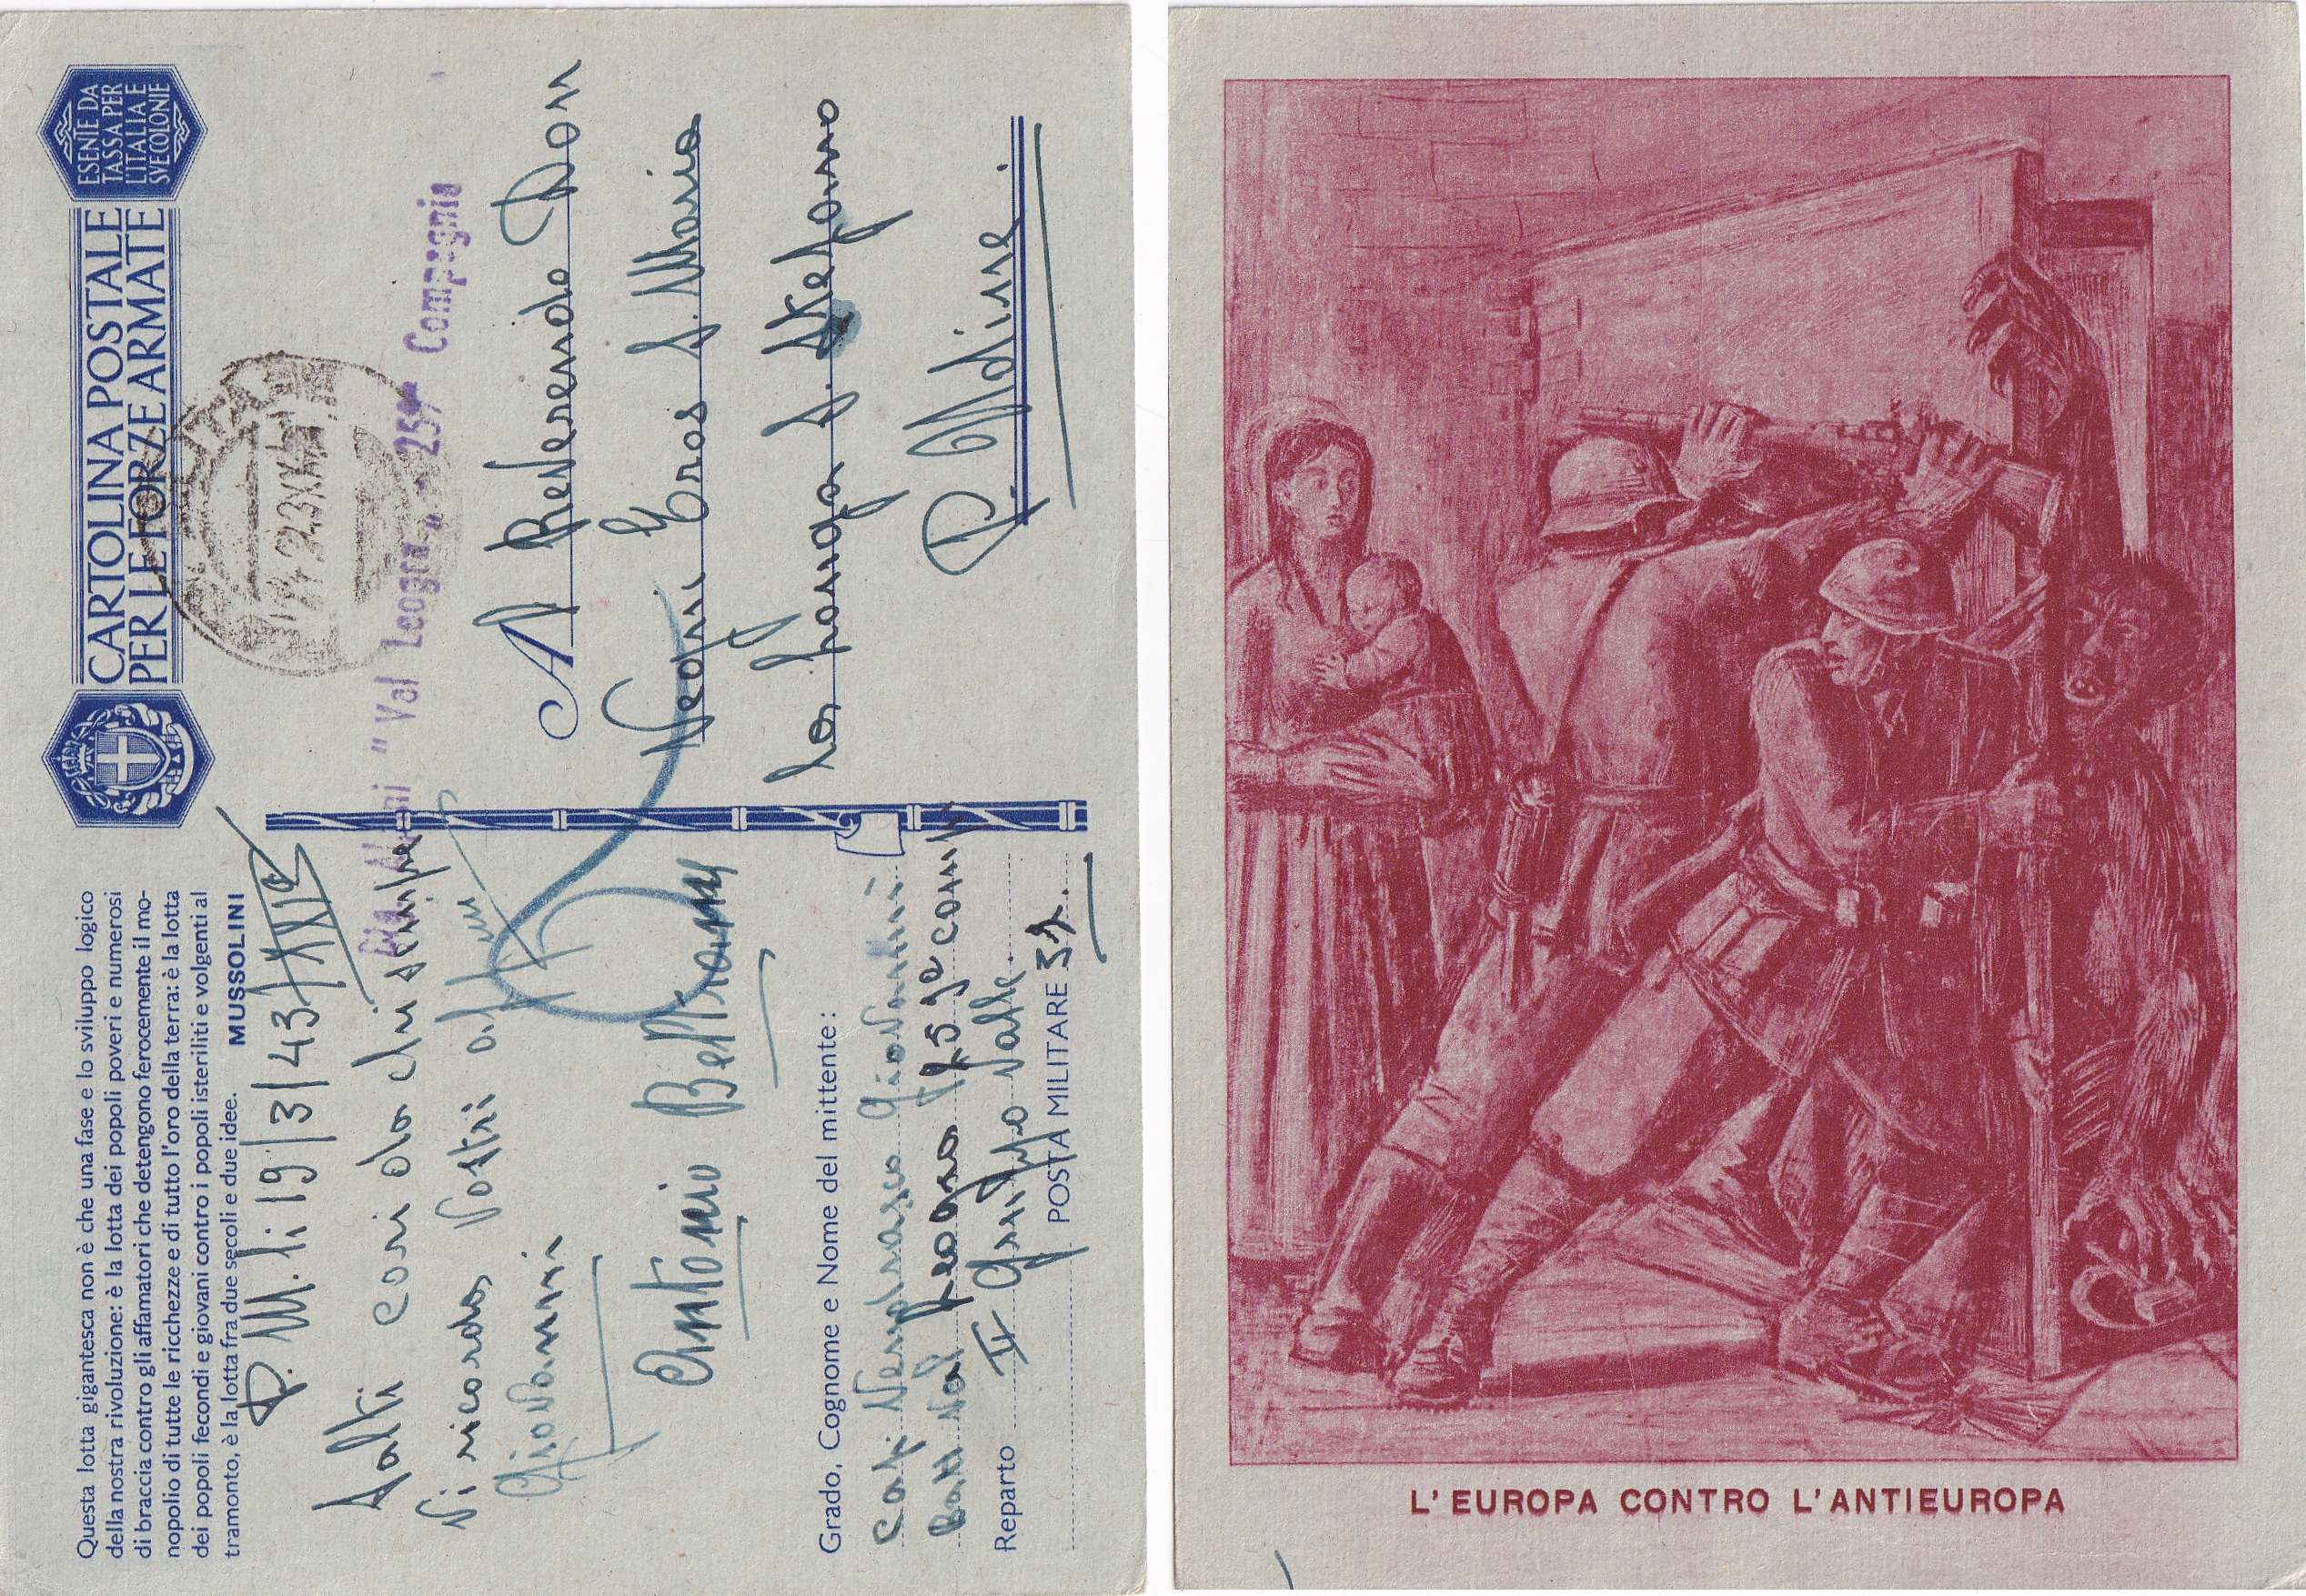 Questa lotta gigantesca non è che una fase e lo sviluppo logico
della nostra rivoluzione: è la lotta dei popoli poveri e numerosi
di braccia contro gli affamatori che detengono ferocemente il mo-
nopolio di tutte le ricchezze e di tutto l'oro della terra: è la lotta
dei popoli fecondi e giovani contro i popoli isteriliti e volgenti al
tramonto, è la lotta fra due secoli e due idee.
MUSSOLINI
P.M. li 19/3/43/XXI°
Salti cari da chi sempre
Vi ricorda, Vostri
Giovanni
Antonio Beltrame
Grado, Cognome e Nome del mittente:
Cap. Giovanni
Batt Val Leogra 259° comp
Reparto II Gruppo Valle
POSTA MILITARE
CARTOLINA POSTALE
PER LE FORZE ARMATE
ESENTE DA
TASSA PER
L'ITALIA E
SUE COLONIE
Alpini "Val Leogra" 259ª Compagnia
Al Reverendo Don
Neghi Eros S. Maria
la Longa S. Stefano
P. Udine.
L'EUROPA CONTRO L'ANTIEUROPA